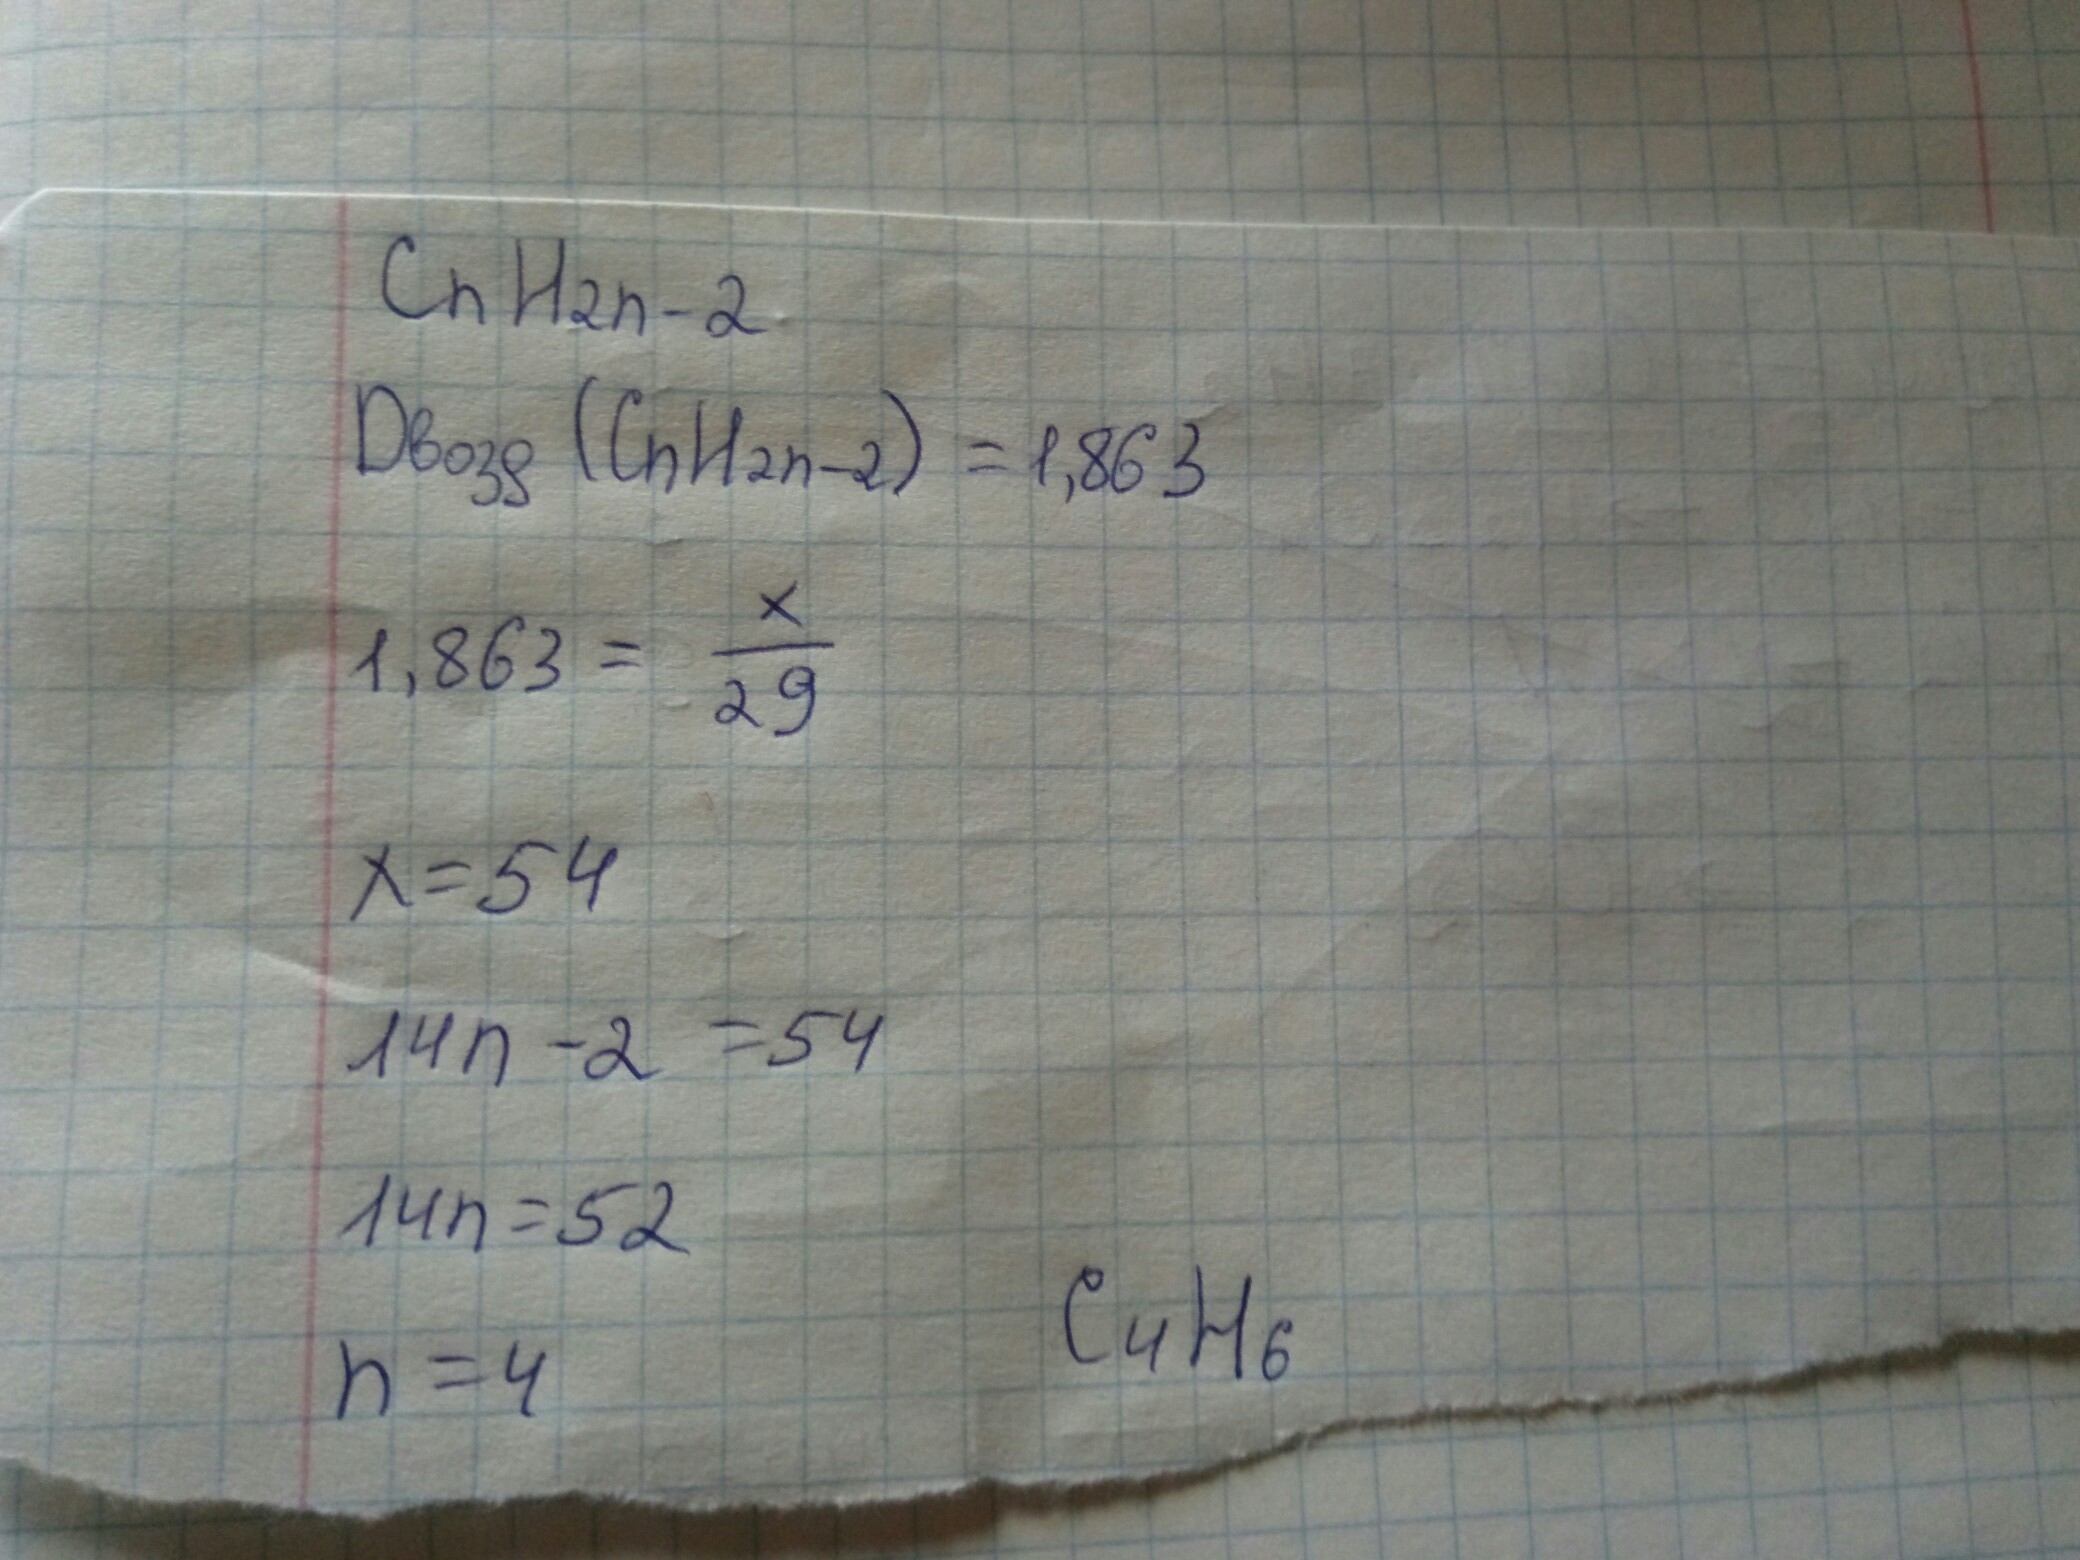 CnH2n-2
Dвозд (CnH2n-2) = 1,863
1,863 = x/29
x=54
14n -2 =54
14n=52
n =4
C4H6